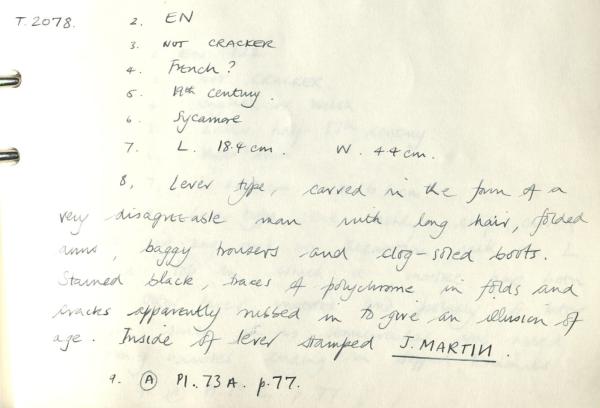 T. 2078. 2. EN
3. NOT CRACKER
4. French?
5. 19th century.
6. Sycamore
7. L. 18.4 cm. W. 4.4 cm.
8. Lever type, carved in the form of a
very disagreeable man with long hair, folded
arms, baggy trousers and clog-soled boots.
Stained black, traces of polychrome in folds and
cracks apparently rubbed in to give an illusion of
age. Inside of lever stamped J. MARTIN.
9. A Pl. 73A. p. 77.